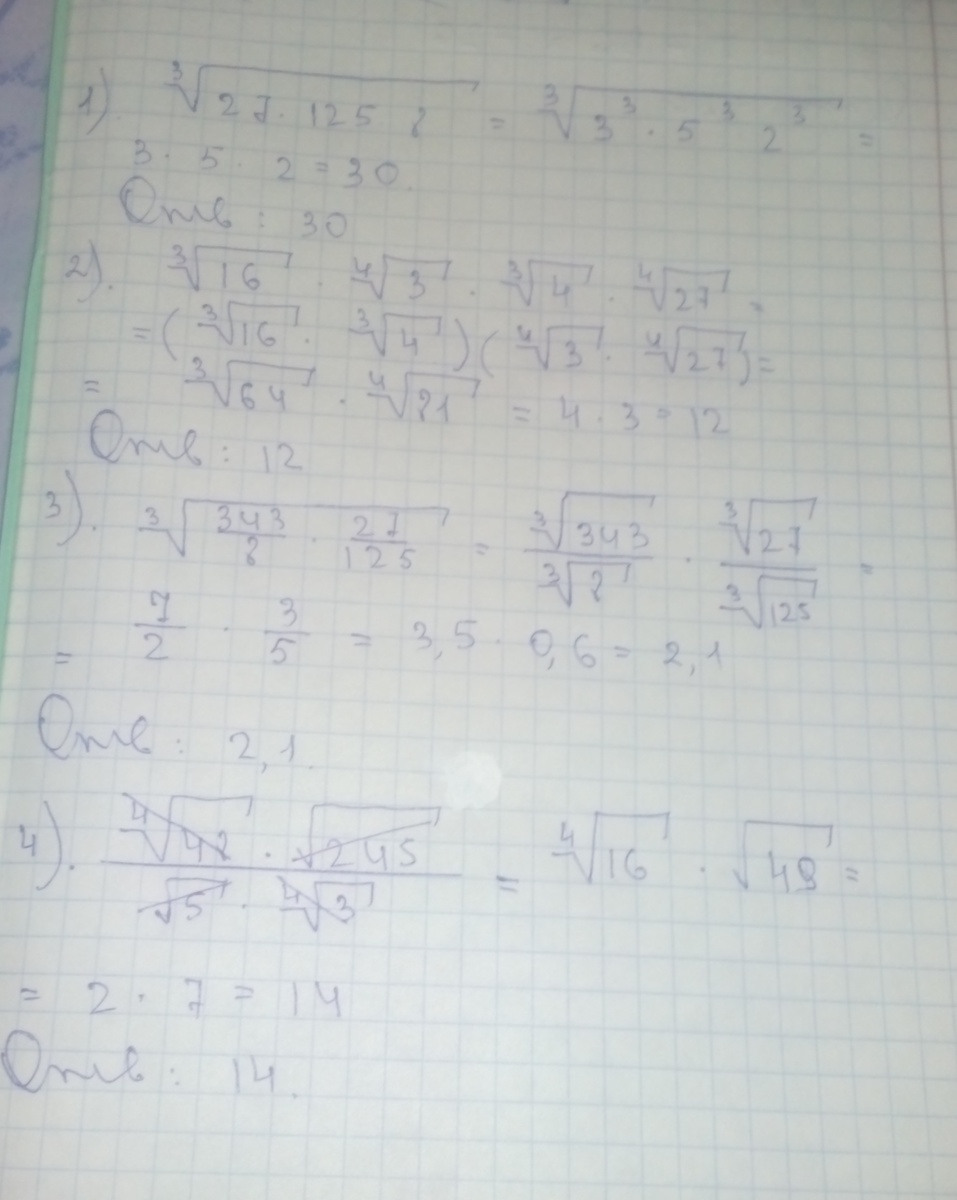 1). ∛(27 · 125 8) = ∛(3³ · 5³ 2³) =
3 · 5 · 2 = 30.
Отв : 30
2). ∛16 · ∜3 · ∛4 · ∜27 =
= (∛16 · ∛4) (∜3 · ∜27) =
= ∛64 · ∜81 = 4 · 3 = 12
Отв : 12
3). ∛(343/8 · 27/125) = ∛343/∛8 · ∛27/∛125 =
= 7/2 · 3/5 = 3,5 · 0,6 = 2,1
Отв : 2,1.
4). (∜48 · √245)/(√5 · ∜3) = ∜16 · √49 =
= 2 · 7 = 14
Отв : 14.